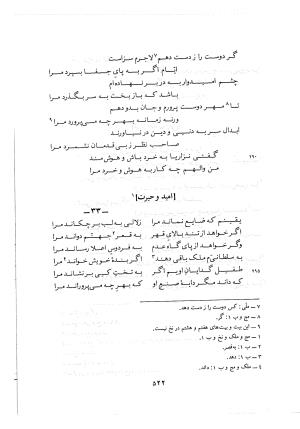 گر دوست را ز دست دهم۷ لاجرم سزاست
ایّام اگر به پای جفا بسپرد مرا
چشم امیدوار به در بر نهاده‌ام
باشد که باز بخت به سر بگذرد مرا
تا۸ مهر دوست پرورم و جان بدو دهم
ورنه زمانه بهر چه می‌پرورد مرا۹
ابدال سر به دنیی و دین در نیاورند
صاحب نظر ز بی قدمان نشمرد مرا
۱۹۰ گفتی نزاریا به خرد باش و هوش‌مند
من والهم چه کار به هوش و خرد مرا
[امید و حیرت]۱
ــ ۳۳ ــ
یقینم که ضایع نماند مرا زلالی به لب بر چکاند مرا
اگر خواهد از تند بالای قهر به قعر۲ جهنّم دواند مرا
وگر خواهد از پای گاه عدم به فردوس اعلا رساند مرا
به سلطانی ملک باقی دهند۳ اگر بندهٔ خویش خواند۴ مرا
۱۹۵ طفیل گدایان اویم اگر به تخت کیی بر نشاند مرا
که داند مگر دایهٔ صنع او که بهر چه می‌پروراند مرا
۷ ــ طی: کس دوست را ز دست دهد.
۸ ــ مج و ب ۱: گر.
۹ ــ این بیت و بیت‌های هفتم و هشتم در نخ نیست.
۱ ــ مج و ملک و نخ و ب ۱.
۲ ــ ب ۱: به‌قصر.
۳ ــ ب ۱: دهد.
۴ ــ ملک و مج و ب ۱: داند.
۵۲۲